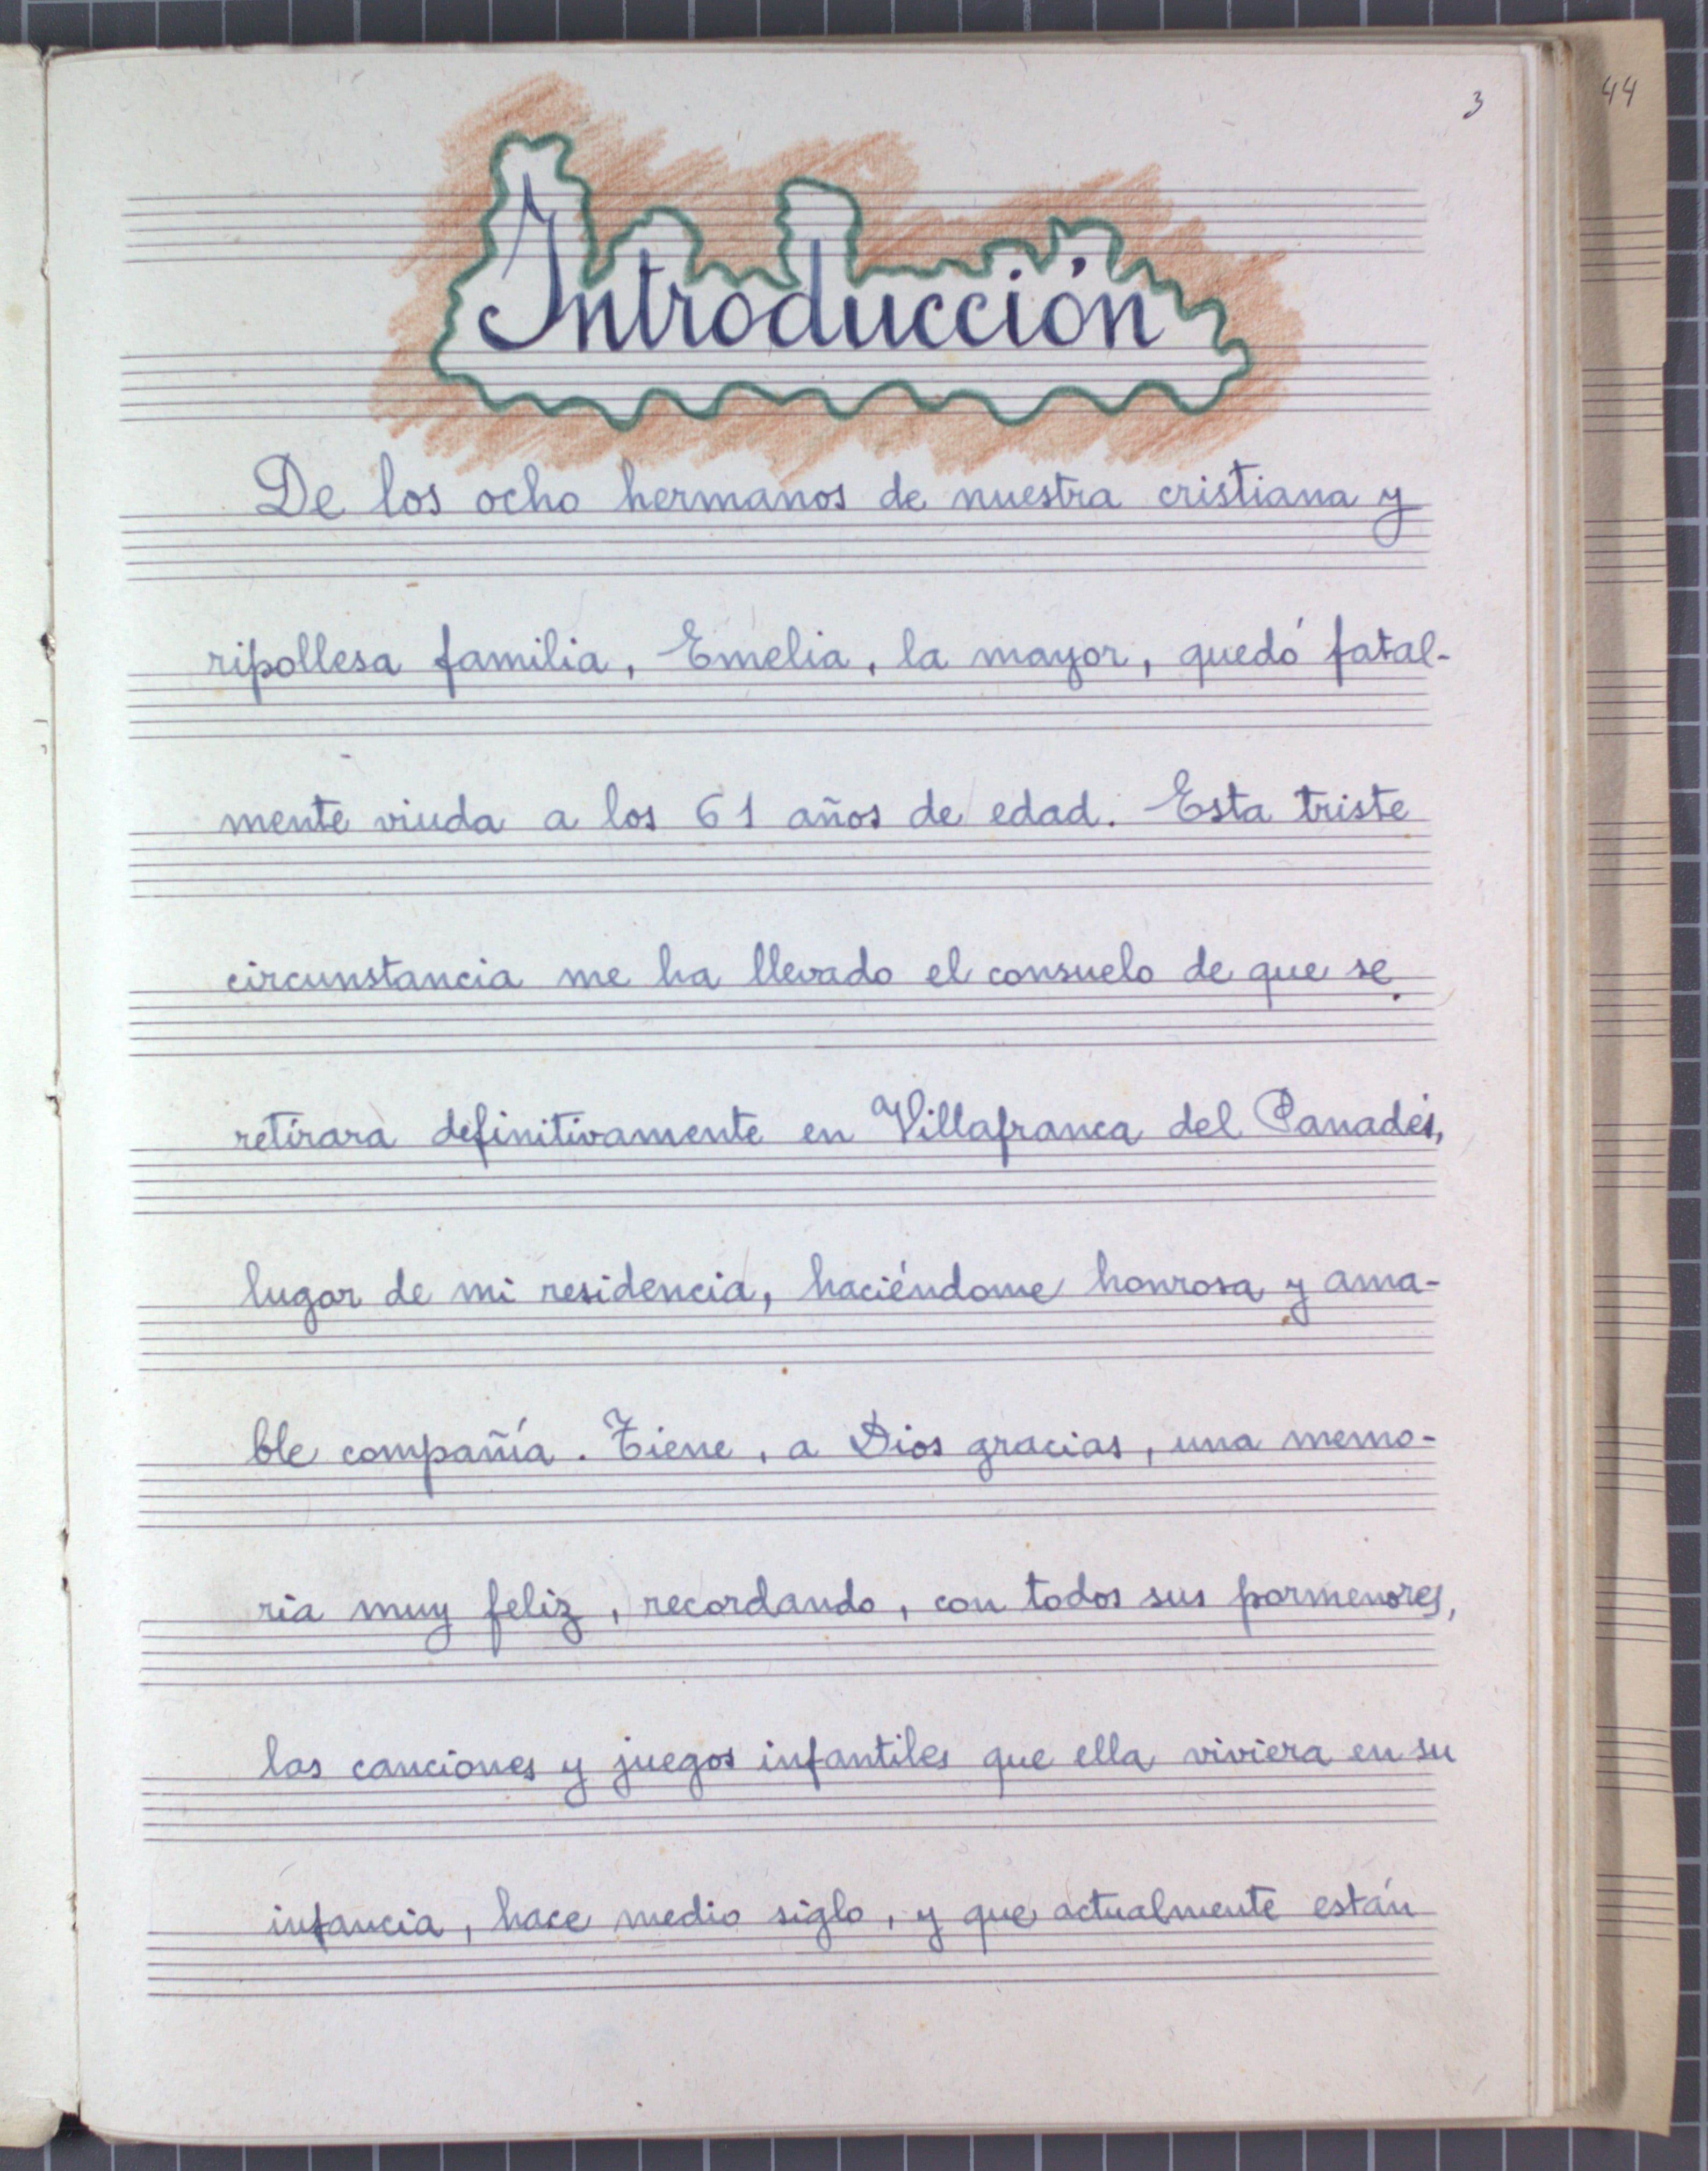 3
44
Introducción
De los ocho hermanos de nuestra cristiana y
ripollesa familia, Emelia, la mayor, quedó fatal-
mente viuda a los 61 años de edad. Esta triste
circunstancia me ha llevado el consuelo de que se
retirara definitivamente en Villafranca del Panadés,
lugar de mi residencia, haciéndome honrosa y ama-
ble compañía. Tiene, a Dios gracias, una memo-
ria muy feliz, recordando, con todos sus pormenores,
las canciones y juegos infantiles que ella viviera en su
infancia, hace medio siglo, y que actualmente están